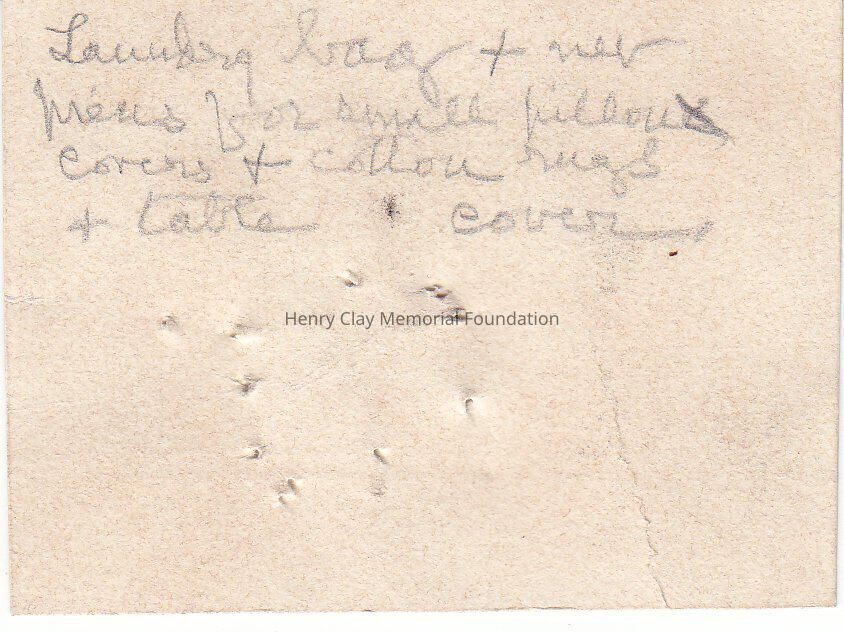 Laundry bag + new
for small pillow
covers + cotton rugs
+ table covers
Henry Clay Memorial Foundation